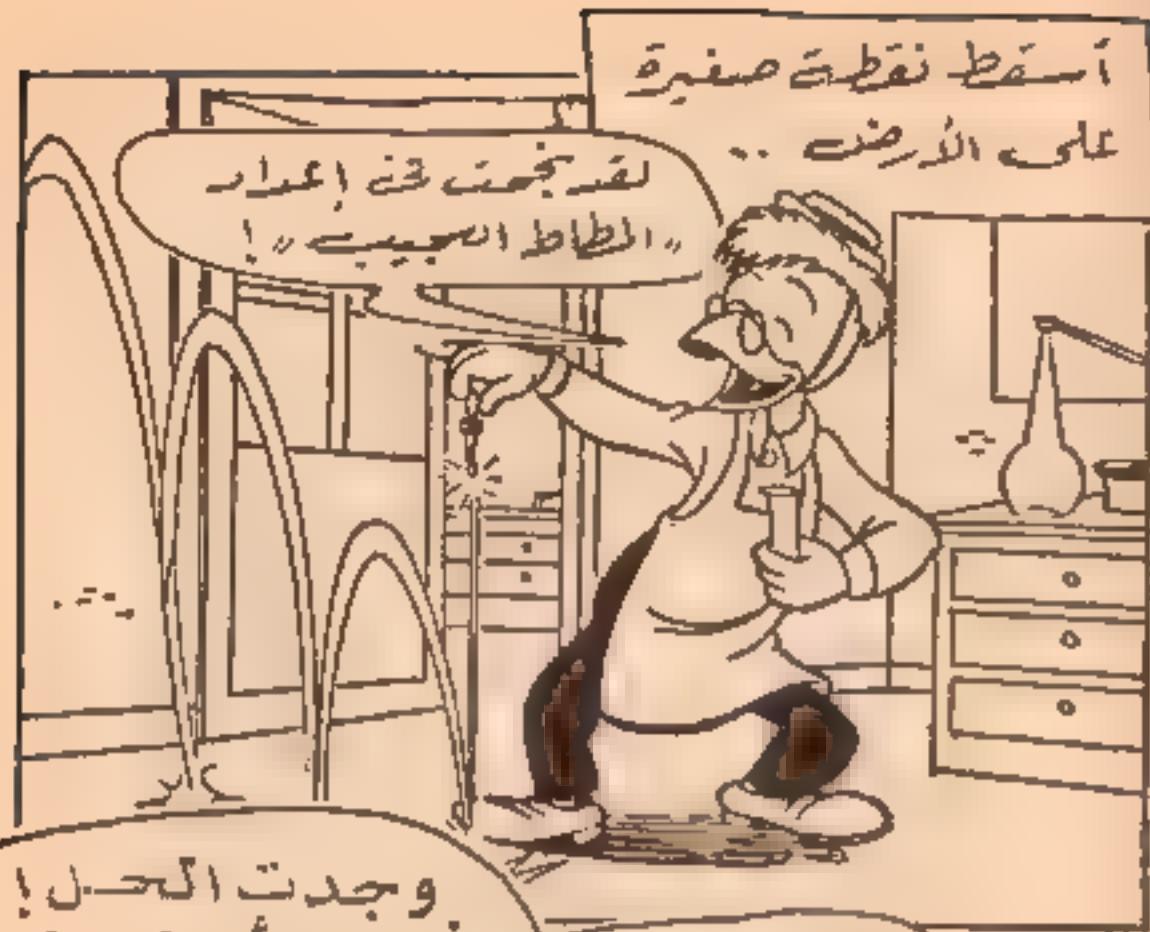 أسقط نقطة صغيرة
على الأرض ..
لقد نجحت في إعداد
"المطاط العجيب" !
وجدت الحل !